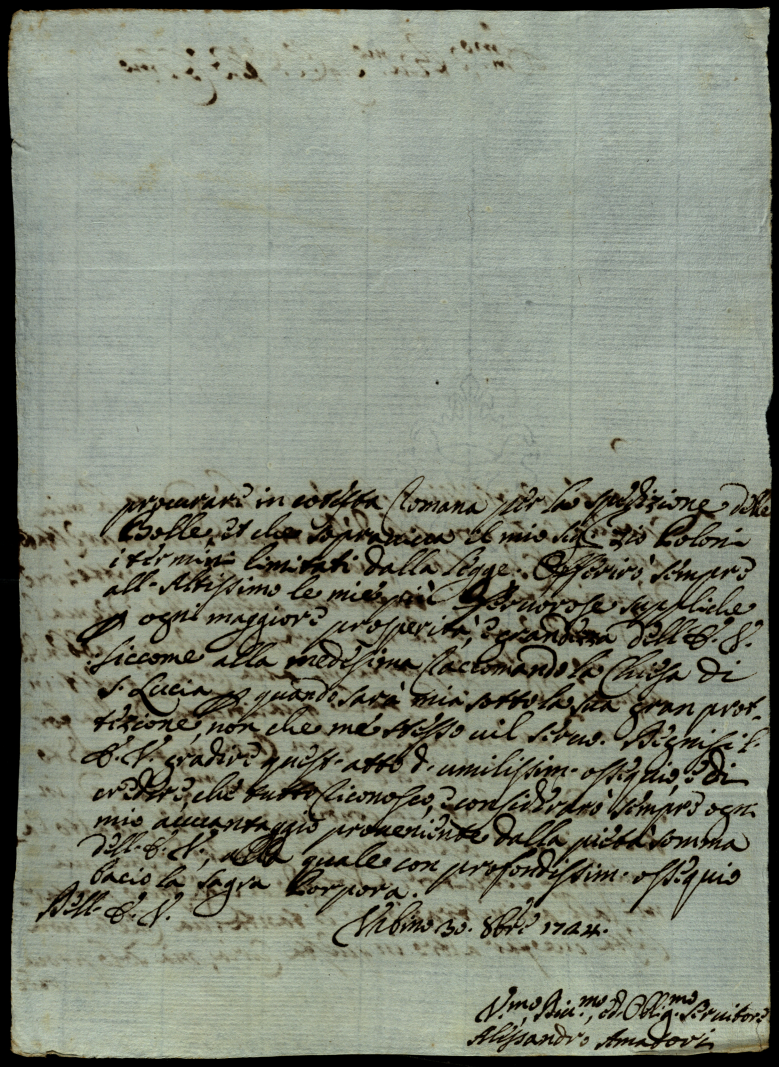 procurare in cotesta Romana per la spedizione delle
Bolle, et che sopravviva el mio Sig.r Zio Poloni
i termini limitati dalla legge. Offeriró sempre
all'Altissimo le mie più fervorose suppliche
p ogni maggiore prosperità, e grandezza dell'E. V.
siccome alla medesima raccomando la Chiesa di
S. Lucia p quando sarà mia sotto la sua gran prot-
tezione, non che me stesso vil servo. Degnisi l'
E. V. gradire quest'atto d'umilissim. ossequio, e di
credere, che tutto riconosco, e considerarò sempre ogni
mio avvantaggio proveniente dalla pietà somma
dell'E. V., alla quale con profondissim. ossequio
bacio la Sagra Porpora.
Dell'E. V.
Urbino 30. 8bre 1724.
V.mo Div.mo, ed Oblig.mo Servitore
Alessandro Amadori